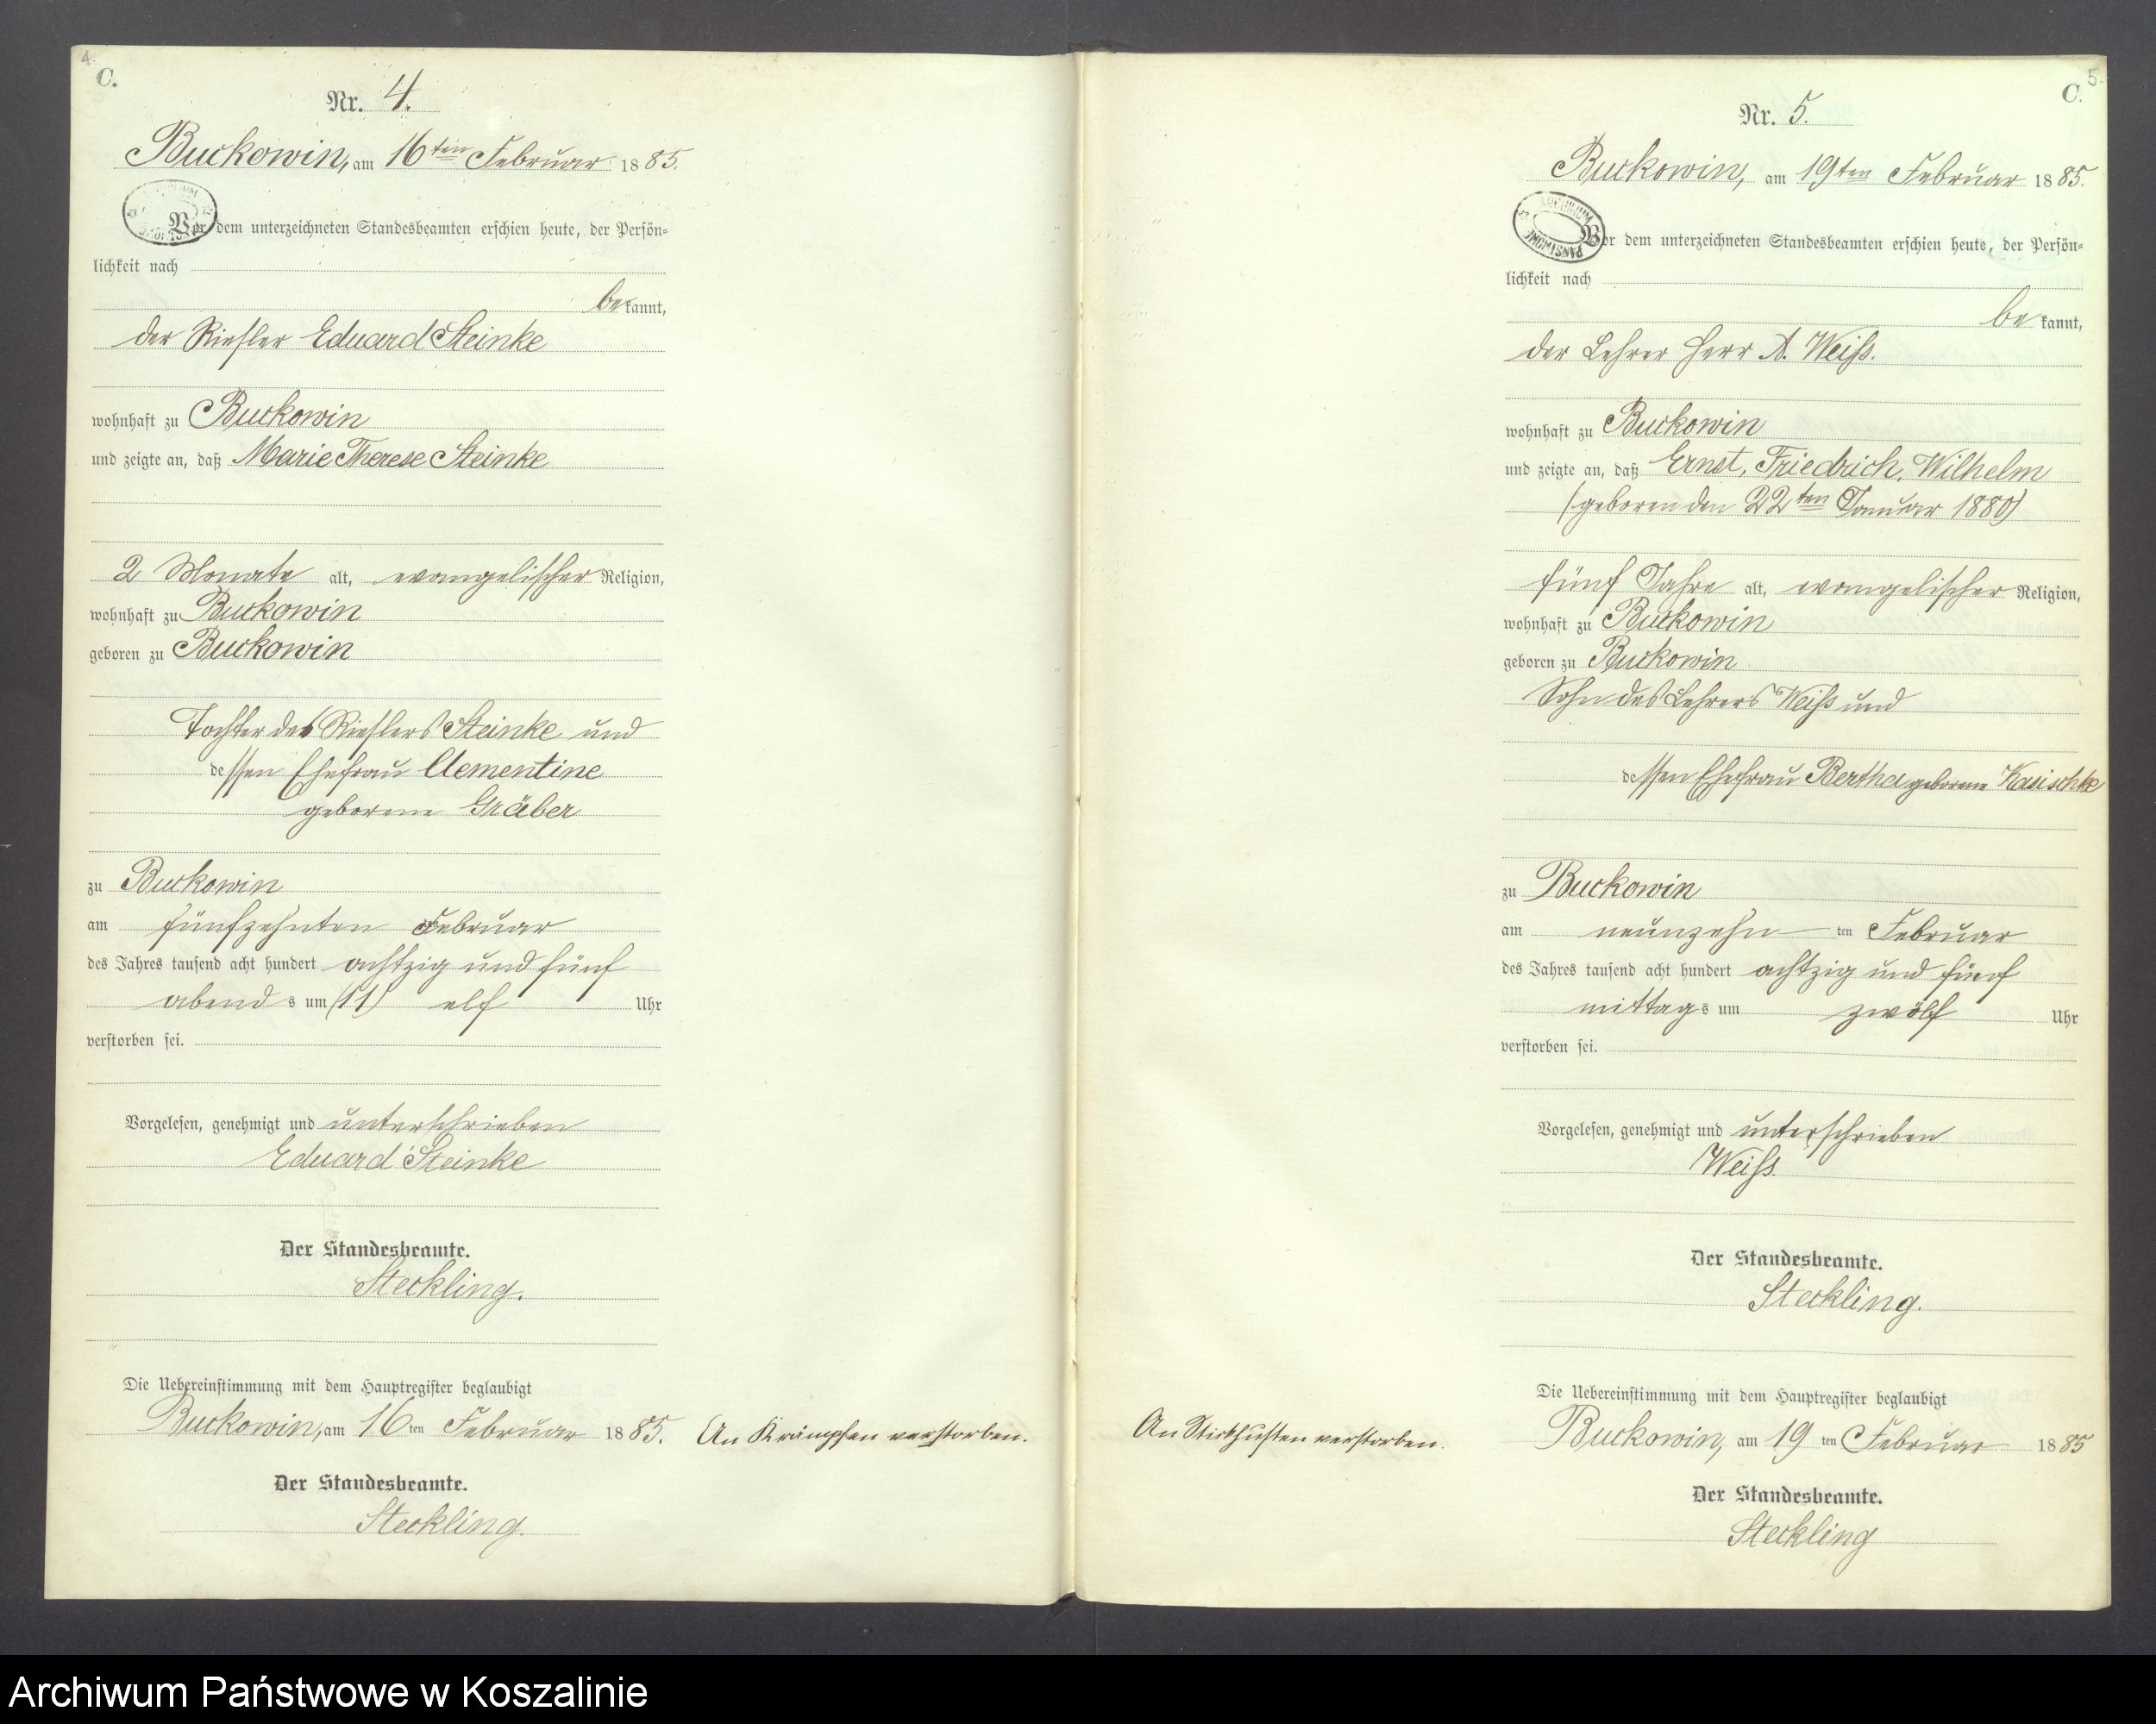 4.
C.
Nr. 4.
Buckowin, am 16ten Februar 1885.
Vor dem unterzeichneten Standesbeamten erschien heute, der Persön-
lichkeit nach
bekannt,
der Riesler Eduard Steinke
wohnhaft zu Buckowin
und zeigte an, daß Marie Therese Steinke
2 Monate alt, evangelischer Religion,
wohnhaft zu Buckowin
geboren zu Buckowin
Tochter des Rieslers Steinke und
dessen Ehefrau Clementine
geborene Gräber
zu Buckowin
am fünfzehnten Februar
des Jahres tausend acht hundert achtzig und fünf
abends um (11) elf Uhr
verstorben sei.
Vorgelesen, genehmigt und unterschrieben
Eduard Steinke
Der Standesbeamte.
Steckling.
Die Uebereinstimmung mit dem Hauptregister beglaubigt
Buckowin, am 16ten Februar 1885.
An Krämpfen verstorben.
Der Standesbeamte.
Steckling.
5.
C.
Nr. 5.
Buckowin, am 19ten Februar 1885.
ARCHIWUM
Vor dem unterzeichneten Standesbeamten erschien heute, der Persön-
lichkeit nach
bekannt,
der Lehrer Herr A. Weiß.
wohnhaft zu Buckowin
und zeigte an, daß Ernst, Friedrich, Wilhelm
(geboren den 22ten Januar 1880)
fünf Jahre alt, evangelischer Religion,
wohnhaft zu Buckowin
geboren zu Buckowin
Sohn des Lehrers Weiß und
dessen Ehefrau Bertha geborene Kasischke
zu Buckowin
am neunzehnten Februar
des Jahres tausend acht hundert achtzig und fünf
mittags um zwölf Uhr
verstorben sei.
Vorgelesen, genehmigt und unterschrieben
Weiß.
Der Standesbeamte.
Steckling.
Die Uebereinstimmung mit dem Hauptregister beglaubigt
An Stickhusten verstorben.
Buckowin, am 19ten Februar 1885
Der Standesbeamte.
Steckling
Archiwum Państwowe w Koszalinie